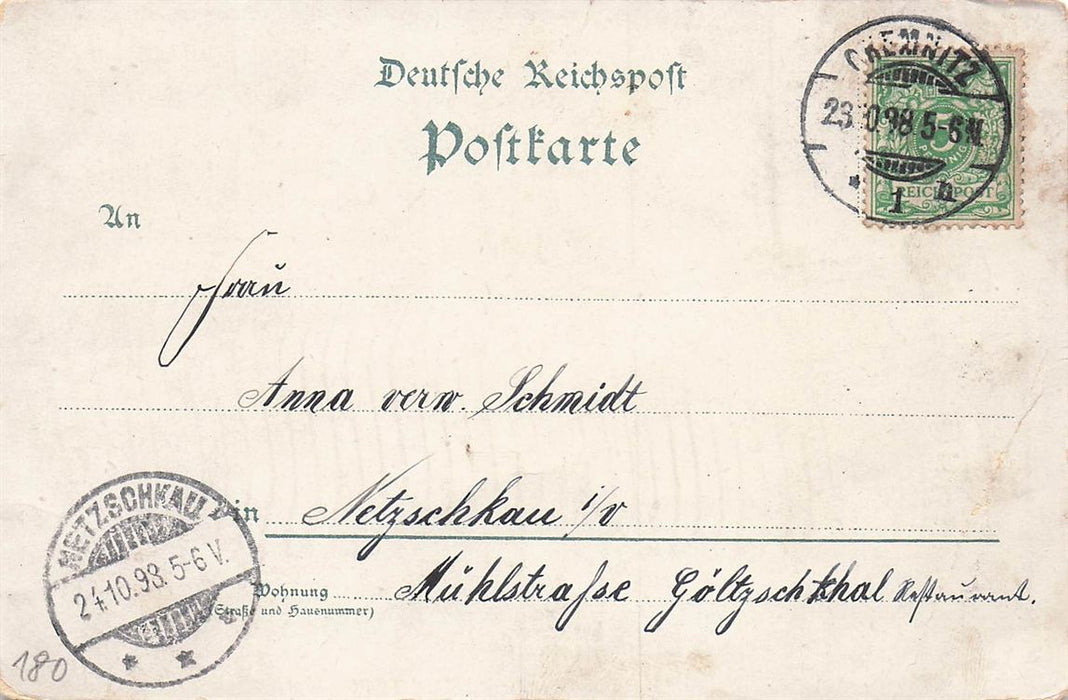 Deutsche Reichspost
Postkarte
CHEMNITZ
23 10 98 5-6 N
* 1 n
5
PFENNIG
REICHSPOST
An
Frau
Anna verw. Schmidt
in Netzschkau i/V
Wohnung Mühlstraſse Göltzschthal Restaurant.
(Straße und Hausnummer)
NETZSCHKAU
24.10.98. 5-6 V.
* *
180